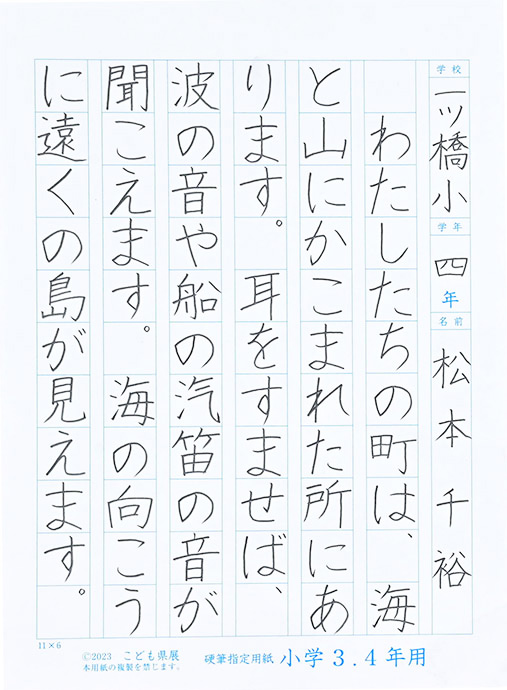 学校 一ッ橋小 学年 四年 名前 松本千裕
わたしたちの町は、海
と山にかこまれた所にあ
ります。耳をすませば、
波の音や船の汽笛の音が
聞こえます。海の向こう
に遠くの島が見えます。
11×6
©2023 こども県展
本用紙の複製を禁じます。
硬筆指定用紙 小学3.4年用